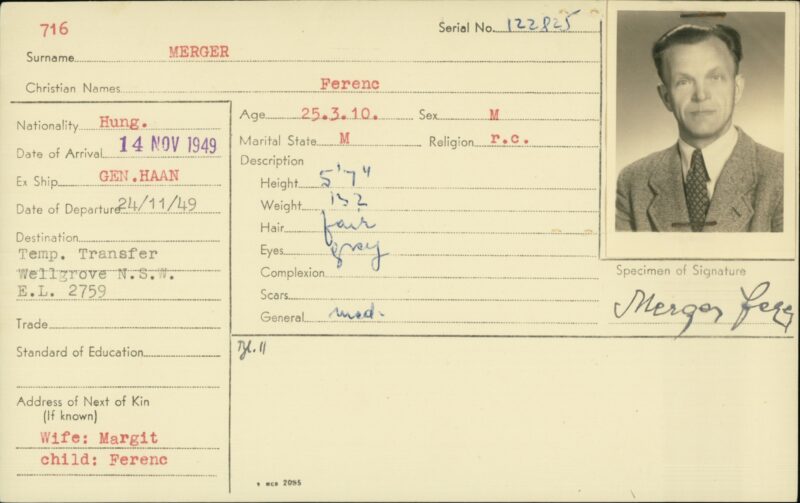 716
Serial No. 122825
Surname MERGER
Christian Names Ferenc
Nationality Hung.
Date of Arrival 14 NOV 1949
Ex Ship GEN.HAAN
Date of Departure 24/11/49
Destination
Temp. Transfer
Wellgrove N.S.W.
E.L. 2759
Trade
Standard of Education
Address of Next of Kin
(If known)
Wife: Margit
child: Ferenc
Age 25.3.10. Sex M
Marital State M Religion r.c.
Description
Height 5'7"
Weight 132
Hair fair
Eyes grey
Complexion
Scars
General med.
Specimen of Signature
Merger Ferenc
2085